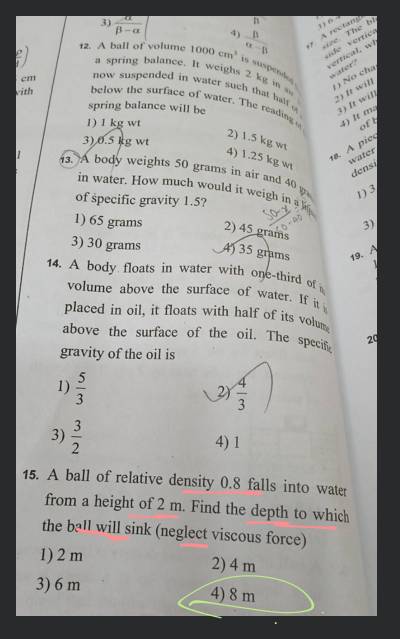 3) α / β−α
4) β / α−β
12. A ball of volume 1000 cm³ is suspended
a spring balance. It weighs 2 kg in
now suspended in water such that half of
below the surface of water. The reading of
spring balance will be
1) 1 kg wt
2) 1.5 kg wt
3) 0.5 kg wt
4) 1.25 kg wt
13. A body weights 50 grams in air and 40
in water. How much would it weigh in a
of specific gravity 1.5?
1) 65 grams
2) 45 grams
3) 30 grams
4) 35 grams
14. A body floats in water with one-third of
volume above the surface of water. If it
placed in oil, it floats with half of its volume
above the surface of the oil. The specific
gravity of the oil is
1) 5/3
2) 4/3
3) 3/2
4) 1
15. A ball of relative density 0.8 falls into water
from a height of 2 m. Find the depth to which
the ball will sink (neglect viscous force)
1) 2 m
2) 4 m
3) 6 m
4) 8 m
cm
with
17. A
size. The
side vertical
vertical,
water?
1) No
2) It will
3) It will
4) It
of
18. A
water
1) 3
3)
19. A
20